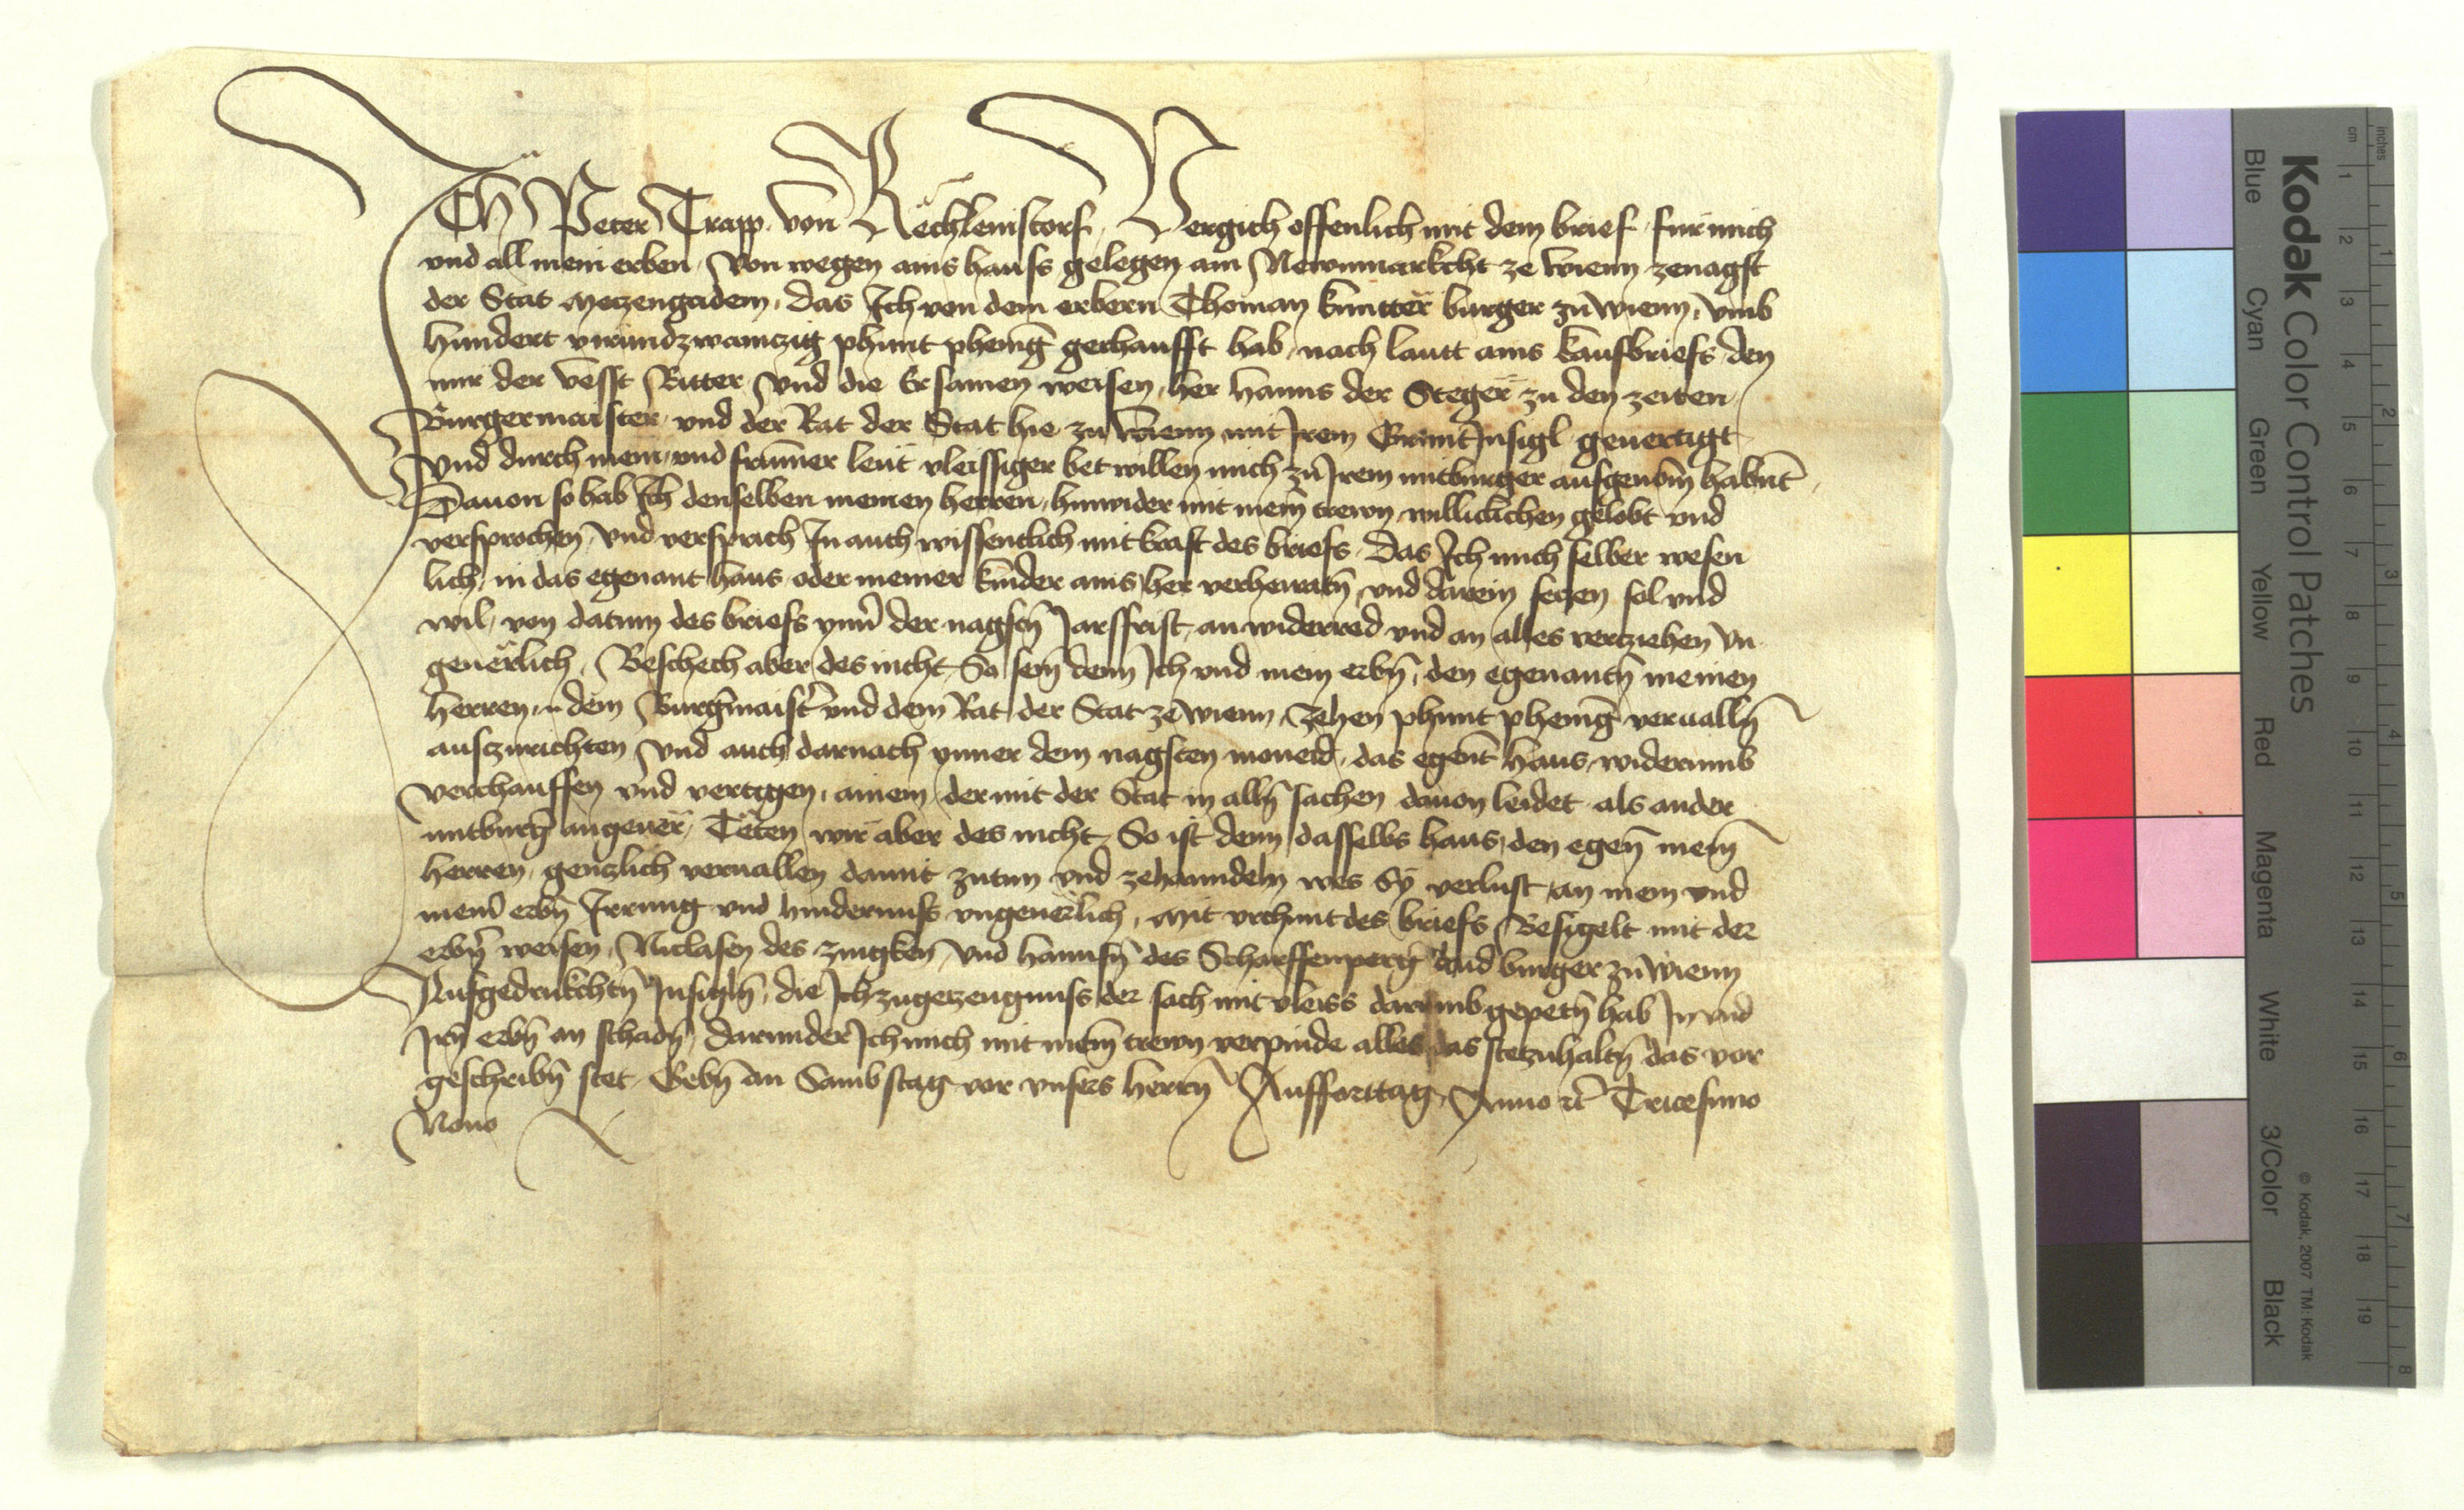 Ich Peter Trapp von Rechlenstorf, Vergich offenlich mit dem brief fur mich
vnd all mein erben, Von wegen ains hauss gelegen am Newnmarkcht ze wienn zenagst
der Stat Metzengadem, das Ich von dem erbern Thoman burger zu wienn, vmb
Hundert virundzwainczig phunt phenīg gechaufft hab, nach lautt ains kaufbriefs, den
mir der vesst Ritter vnd die Ersamen weisen, her Hanns der Steger zu den zeiten
Burgermaister, vnd der Rat der Stat hie zu wienn, mit Irem GruntInsigl geuertigt
Vnd durch mein, vnd frumer leut vleissiger bet willen mich zu Irem mitburger aufgenom̄ habnt
Dauon so hab Ich denselben meinen herren, hinwider mit mein̄ trewn, willichlichen gelobt vnd
versprochen, vnd versprich In auch wissentlich mit kraft des briefs, Das Ich mich selber wesen
lich, in das egenant haus oder meiner kinder ains her verheiratn̄, vnd darein seczen sol vnd
wil, von datum des briefs ynn̄ der nagstn̄ Jarsfrist, an widerred vnd an alles verziehen vn
geuerlich, Beschech aber des nicht, So sein̄ denn Ich vnd mein erbn̄, den egenantn̄ meinen
herren, dem Burgm̄aist̄ vnd dem Rat der Stat ze wienn, zehen phunt phenīg verualln̄
auszurichten vnd auch darnach ynner dem nagsten moneid, das egen̄t haus, widerumb
verchauffen vnd vertigen, ainem der mit der Stat in alln̄ sachen dauon leidet als ander
mitburḡ angeuer, Teten wir aber des nicht, So ist denn dasselbs haus, den egen̄ mein̄
herren, genzlich veruallen damit zutun vnd zehanndeln wes Sy verlust, an mein vnd
mein̄ erbn̄ Irrung vnd hindernuss vngeuerlich, Mit vrchunt des briefs Besigelt mit der
erbn̄ weisen, Niclasen des vnd Hannsn̄ des Scharffenperḡ baid burger zu wienn
Aufgedrukchtn̄ Insigln̄, die Ich zugezeugnuss der sach mit vleiss darumb gepetn̄ hab In vnd
Irn̄ erbn̄ an schadn̄, darunder Ich mich mit mein̄ trewn verpinde alles das stetzuhaltn̄ das vor
geschribn̄ stet, Gebn̄ an Sambstag vor vnsers herrn̄ Auffarttag, Anno ꝛc̄ Tricesimo
Nono
Kodak Color Control Patches
Blue Cyan Green Yellow Red Magenta White 3/Color Black
© Kodak, 2007 TM: Kodak
cm 1 2 4 5 6 7 8 9 10 11 12 13 14 15 16 17 18 19
inches 1 2 3 4 5 6 7 8